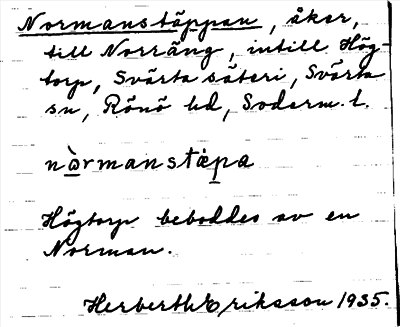 Normanstäppan, åker,
till Norräng, intill Hög-
torp, Svärta säteri, Svärta
sn, Rönö hd, Söderm. l.
nòrmanstäpa
Högtorp beboddes av en
Norman.
Herberth Eriksson 1935.